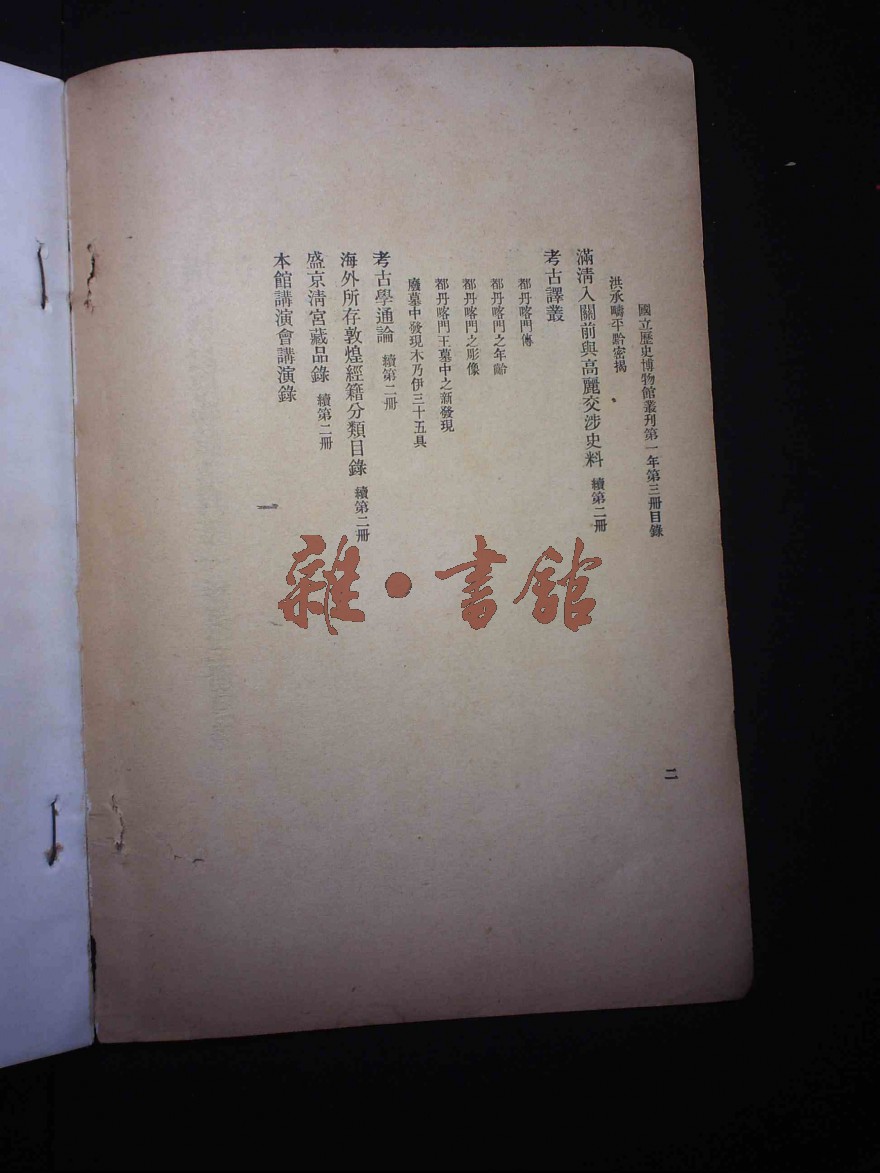 國立歷史博物館叢刊第一年第三冊目錄
洪承疇平黔密揭
滿淸入關前與高麗交涉史料 續第二冊
考古譯叢
都丹喀門傳
都丹喀門之年齡
都丹喀門之彫像
都丹喀門王墓中之新發現
廢墓中發現木乃伊三十五具
考古學通論 續第二冊
海外所存敦煌經籍分類目錄 續第二冊
盛京淸宮藏品錄 續第二冊
本館講演會講演錄
二
雜·書館